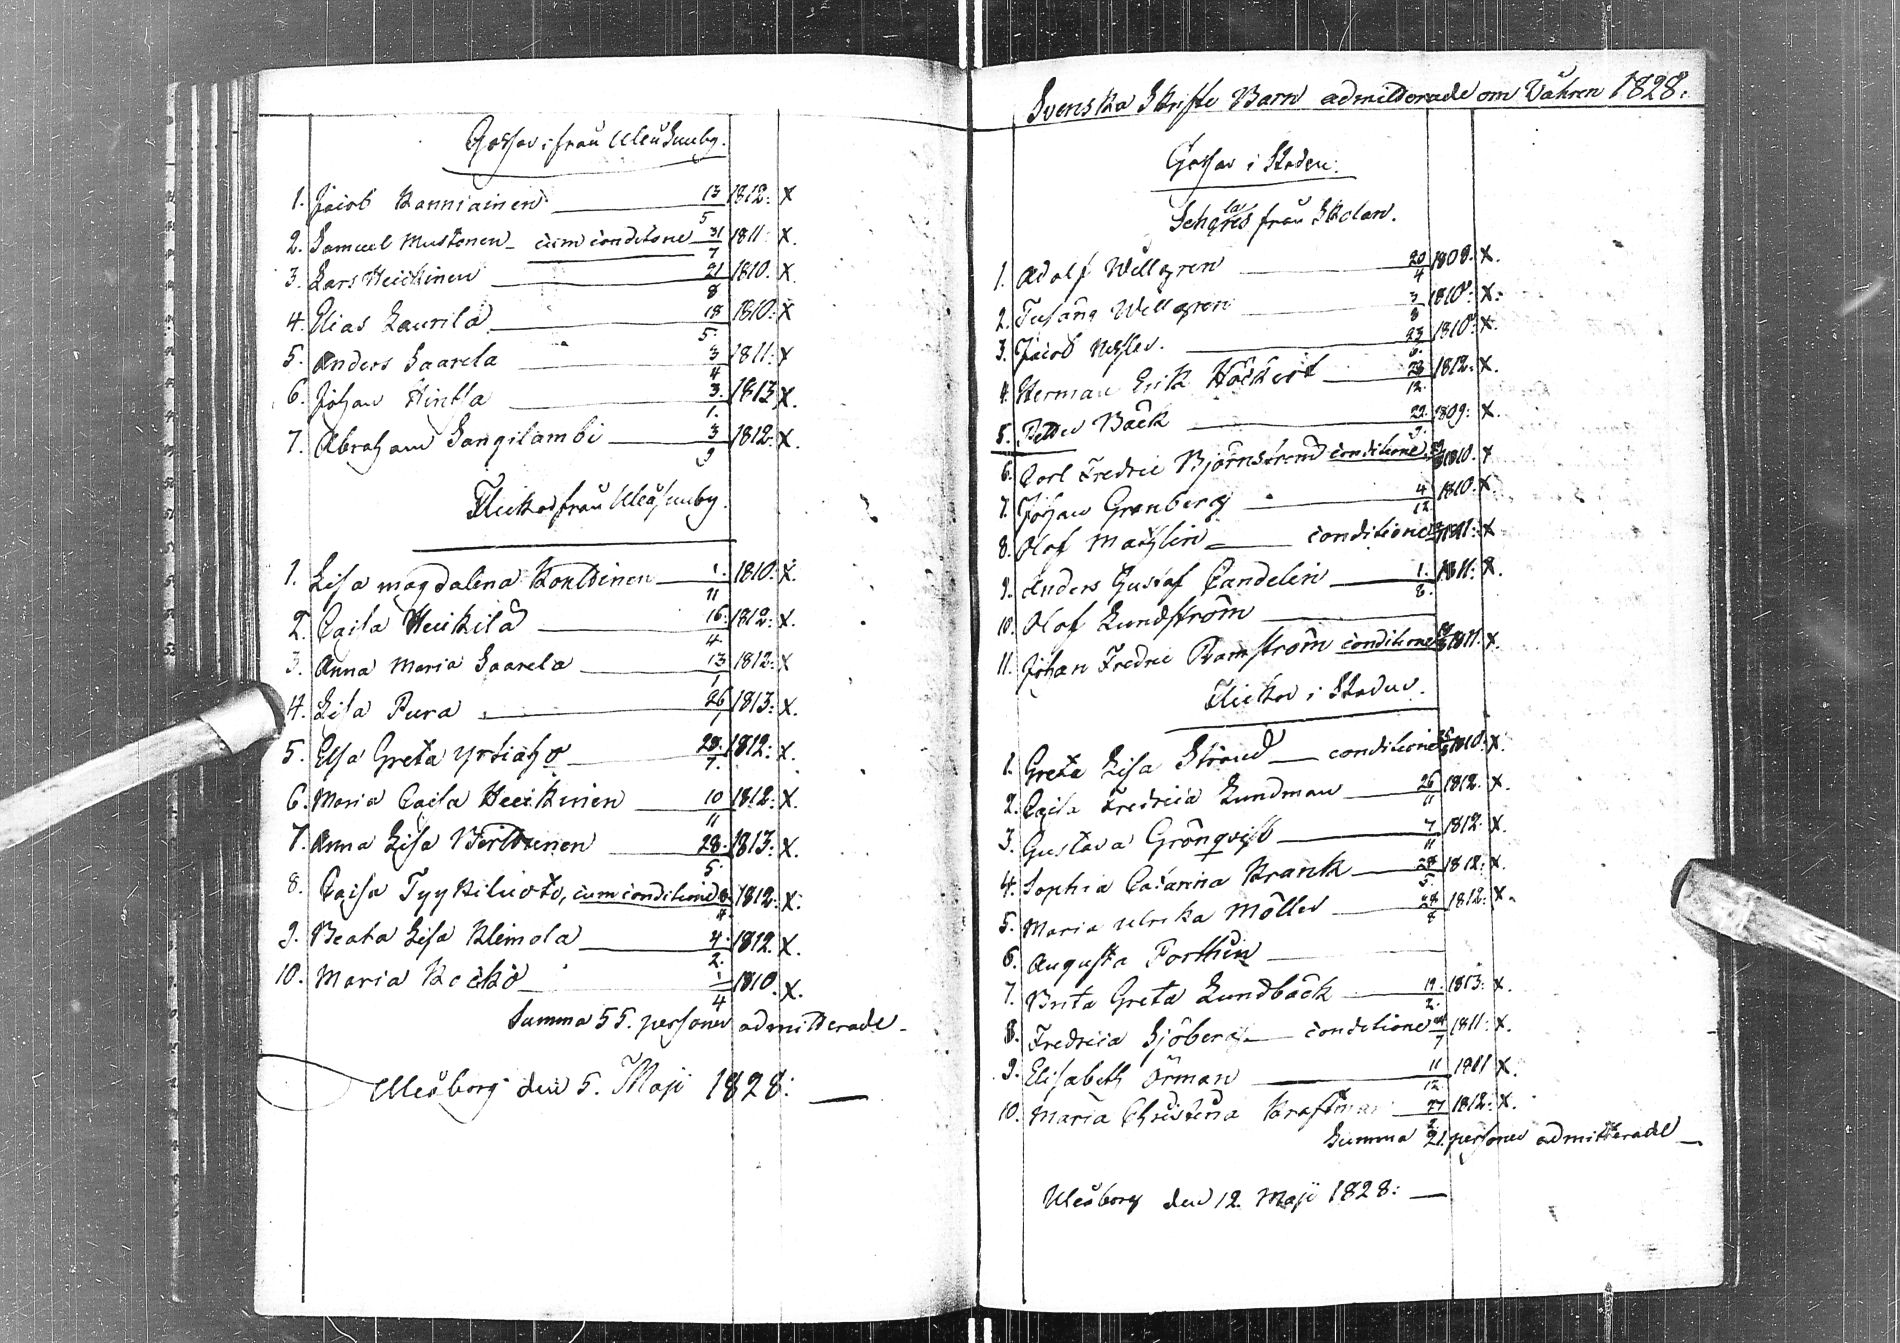 Gossar ifrån Uleåsuuby.
1. Jacob Kanniainen 13/5 1812. X
2. Samuel Mustonen cum conditione 31/7 1811. X.
3. Lars Heickinen 21/8 1810. X.
4. Elias Laurila 18/5 1810. X
5. Anders Saarela 3/4 1811. X
6. Johan Hintsa 3./1. 1813 X.
7. Abraham Sangilambi 3/9 1812. X.
Flickor från Uleåsuuby.
1. Lisa Magdalena Konttinen 1./11 1810. X.
2. Cajsa Heickilä 16./4 1812. X
3. Anna Maria Saarela 13/1 1812. X
4. Lisa Pura 26/1 1813. X.
5. Elsa Greta Yrtiaho 28./7. 1812. X.
6. Maria Cajsa Heickinen 10/11 1812. X.
7. Anna Lisa Virttunen 28./5 1813. X.
8. Cajsa Tyykiluoto, cum conditione 1812. X.
9. Beata Lisa Klemola 4./2. 1812. X.
10. Maria Kocko 1/4 1810. X.
Summa 55. personer admitterade
Uleåborg den 5. Maji 1828.
Svenska Skrifte Barn admitterade om Våhren 1828.
Gossar i Staden.
la
från Skolan.
1. Adolf Wellgren 20/4 1809. X.
2. Wellgren 3/8 1810. X.
3. Jacob 23 1810. X.
4. Herman Erik Höckert 23/12. 1812. X.
5. Petter Bäck 22./9. 1809. X
6. Carl Fredric Björnstrand conditione 1810. X
7. Johan Granberg 4/12 1810. X.
8. Olof Matzlin conditione 1811. X
9. Anders Gustaf Candelin 1./8. 1811. X.
10. Olof Lundström
11. Johan Fredric Ramström conditione 1811. X.
Flickor i Staden.
1. Greta Lisa Strand conditione 1810. X.
2. Cajsa Fredrica Lundman 26/11 1812. X
3. Gustava Grönqvist 7/11 1812. X.
4. Sophia Catarina Krank 28/5. 1812. X.
5. Maria Ulrika Möller 28/8 1812. X.
6. Augusta Forthun
7. Brita Greta Lundbäck 19./2. 1813. X
8. Fredrica Sjöberg conditione 24/7 1811. X.
9. Elisabeth Örman 11/12. 1811 X.
10. Maria Christina Kraftman 27 1812. X.
Summa 21. personer admitterade
Uleåborg den 12. Maji 1828.